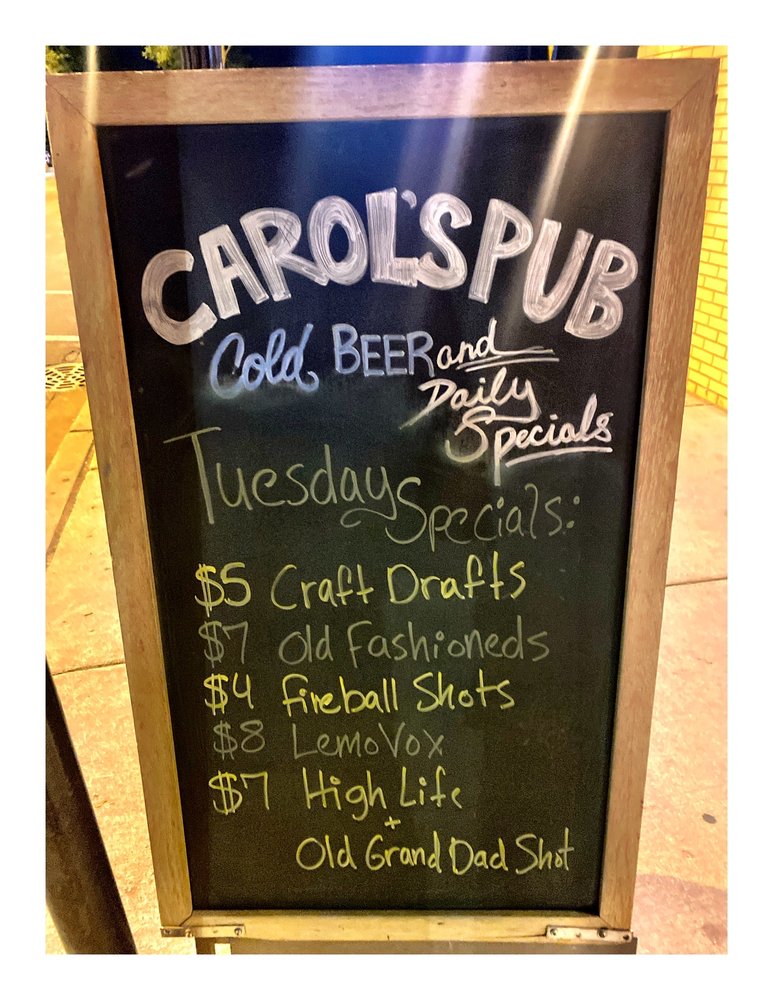 CAROL'S PUB
Cold BEER and
Daily
Specials
Tuesday Specials:
$5 Craft Drafts
$7 Old Fashioneds
$4 Fireball Shots
$8 LemoVox
$7 High Life
+
Old Grand Dad Shot